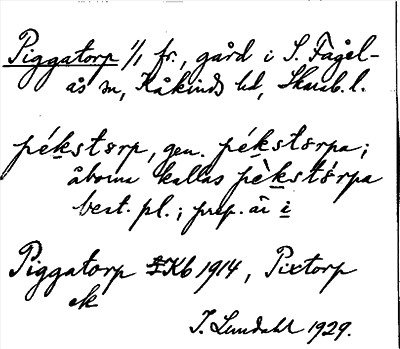 Piggatorp 1/1 fr., gård i S. Fågel-
ås sn, Kåkinds hd, Skarab. l.
pékstɷrp, gen. pékstɷrpa;
åborna kallas pèkstɷ́rpa
best. pl.; prep. är i
Piggatorp Kb 1914, Pixtorp
ek
I. Lundahl 1929.